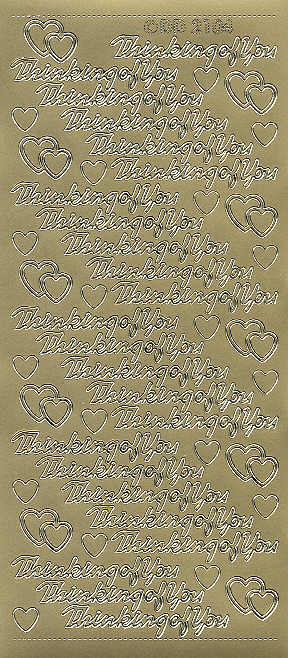 Thinking of You
Thinking of You
Thinking of You
Thinking of You
Thinking of You
Thinking of You
Thinking of You
Thinking of You
Thinking of You
Thinking of You
Thinking of You
Thinking of You
Thinking of You
Thinking of You
Thinking of You
Thinking of You
Thinking of You
Thinking of You
Thinking of You
Thinking of You
Thinking of You
Thinking of You
Thinking of You
Thinking of You